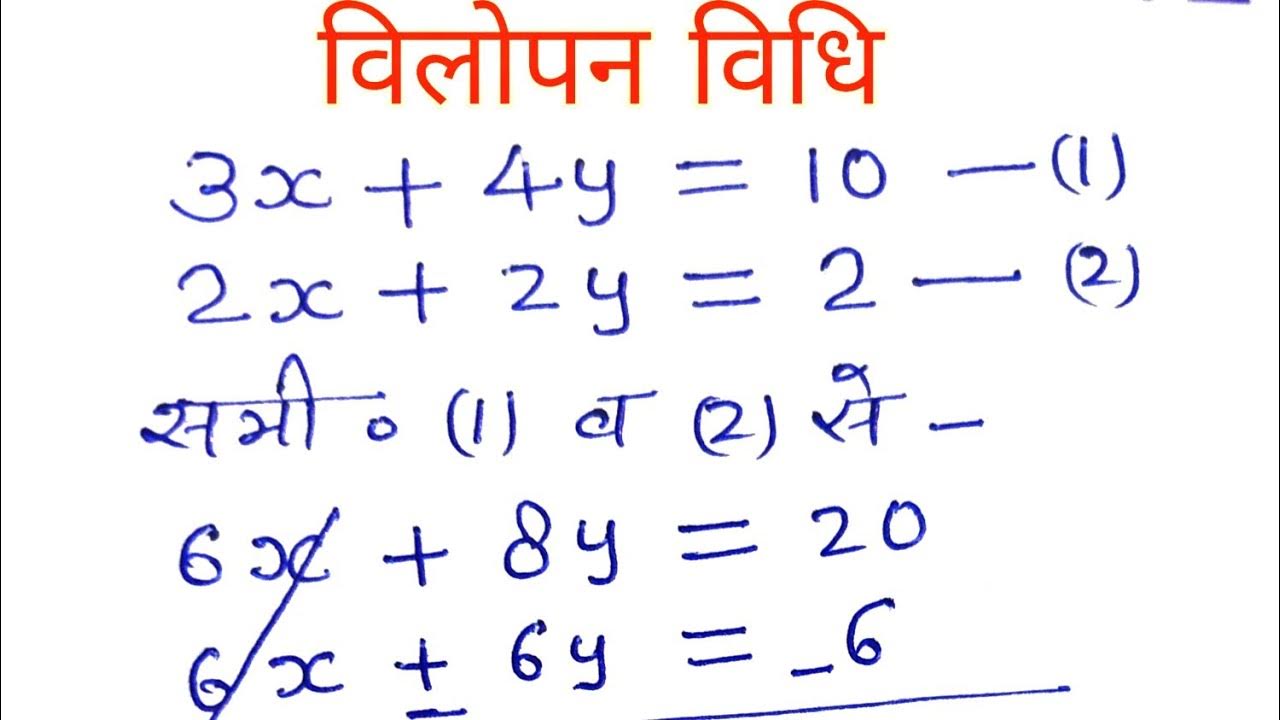 विलोपन विधि
3x + 4y = 10 — (1)
2x + 2y = 2 — (2)
समी० (1) व (2) से –
6x + 8y = 20
6x ± 6y = _6